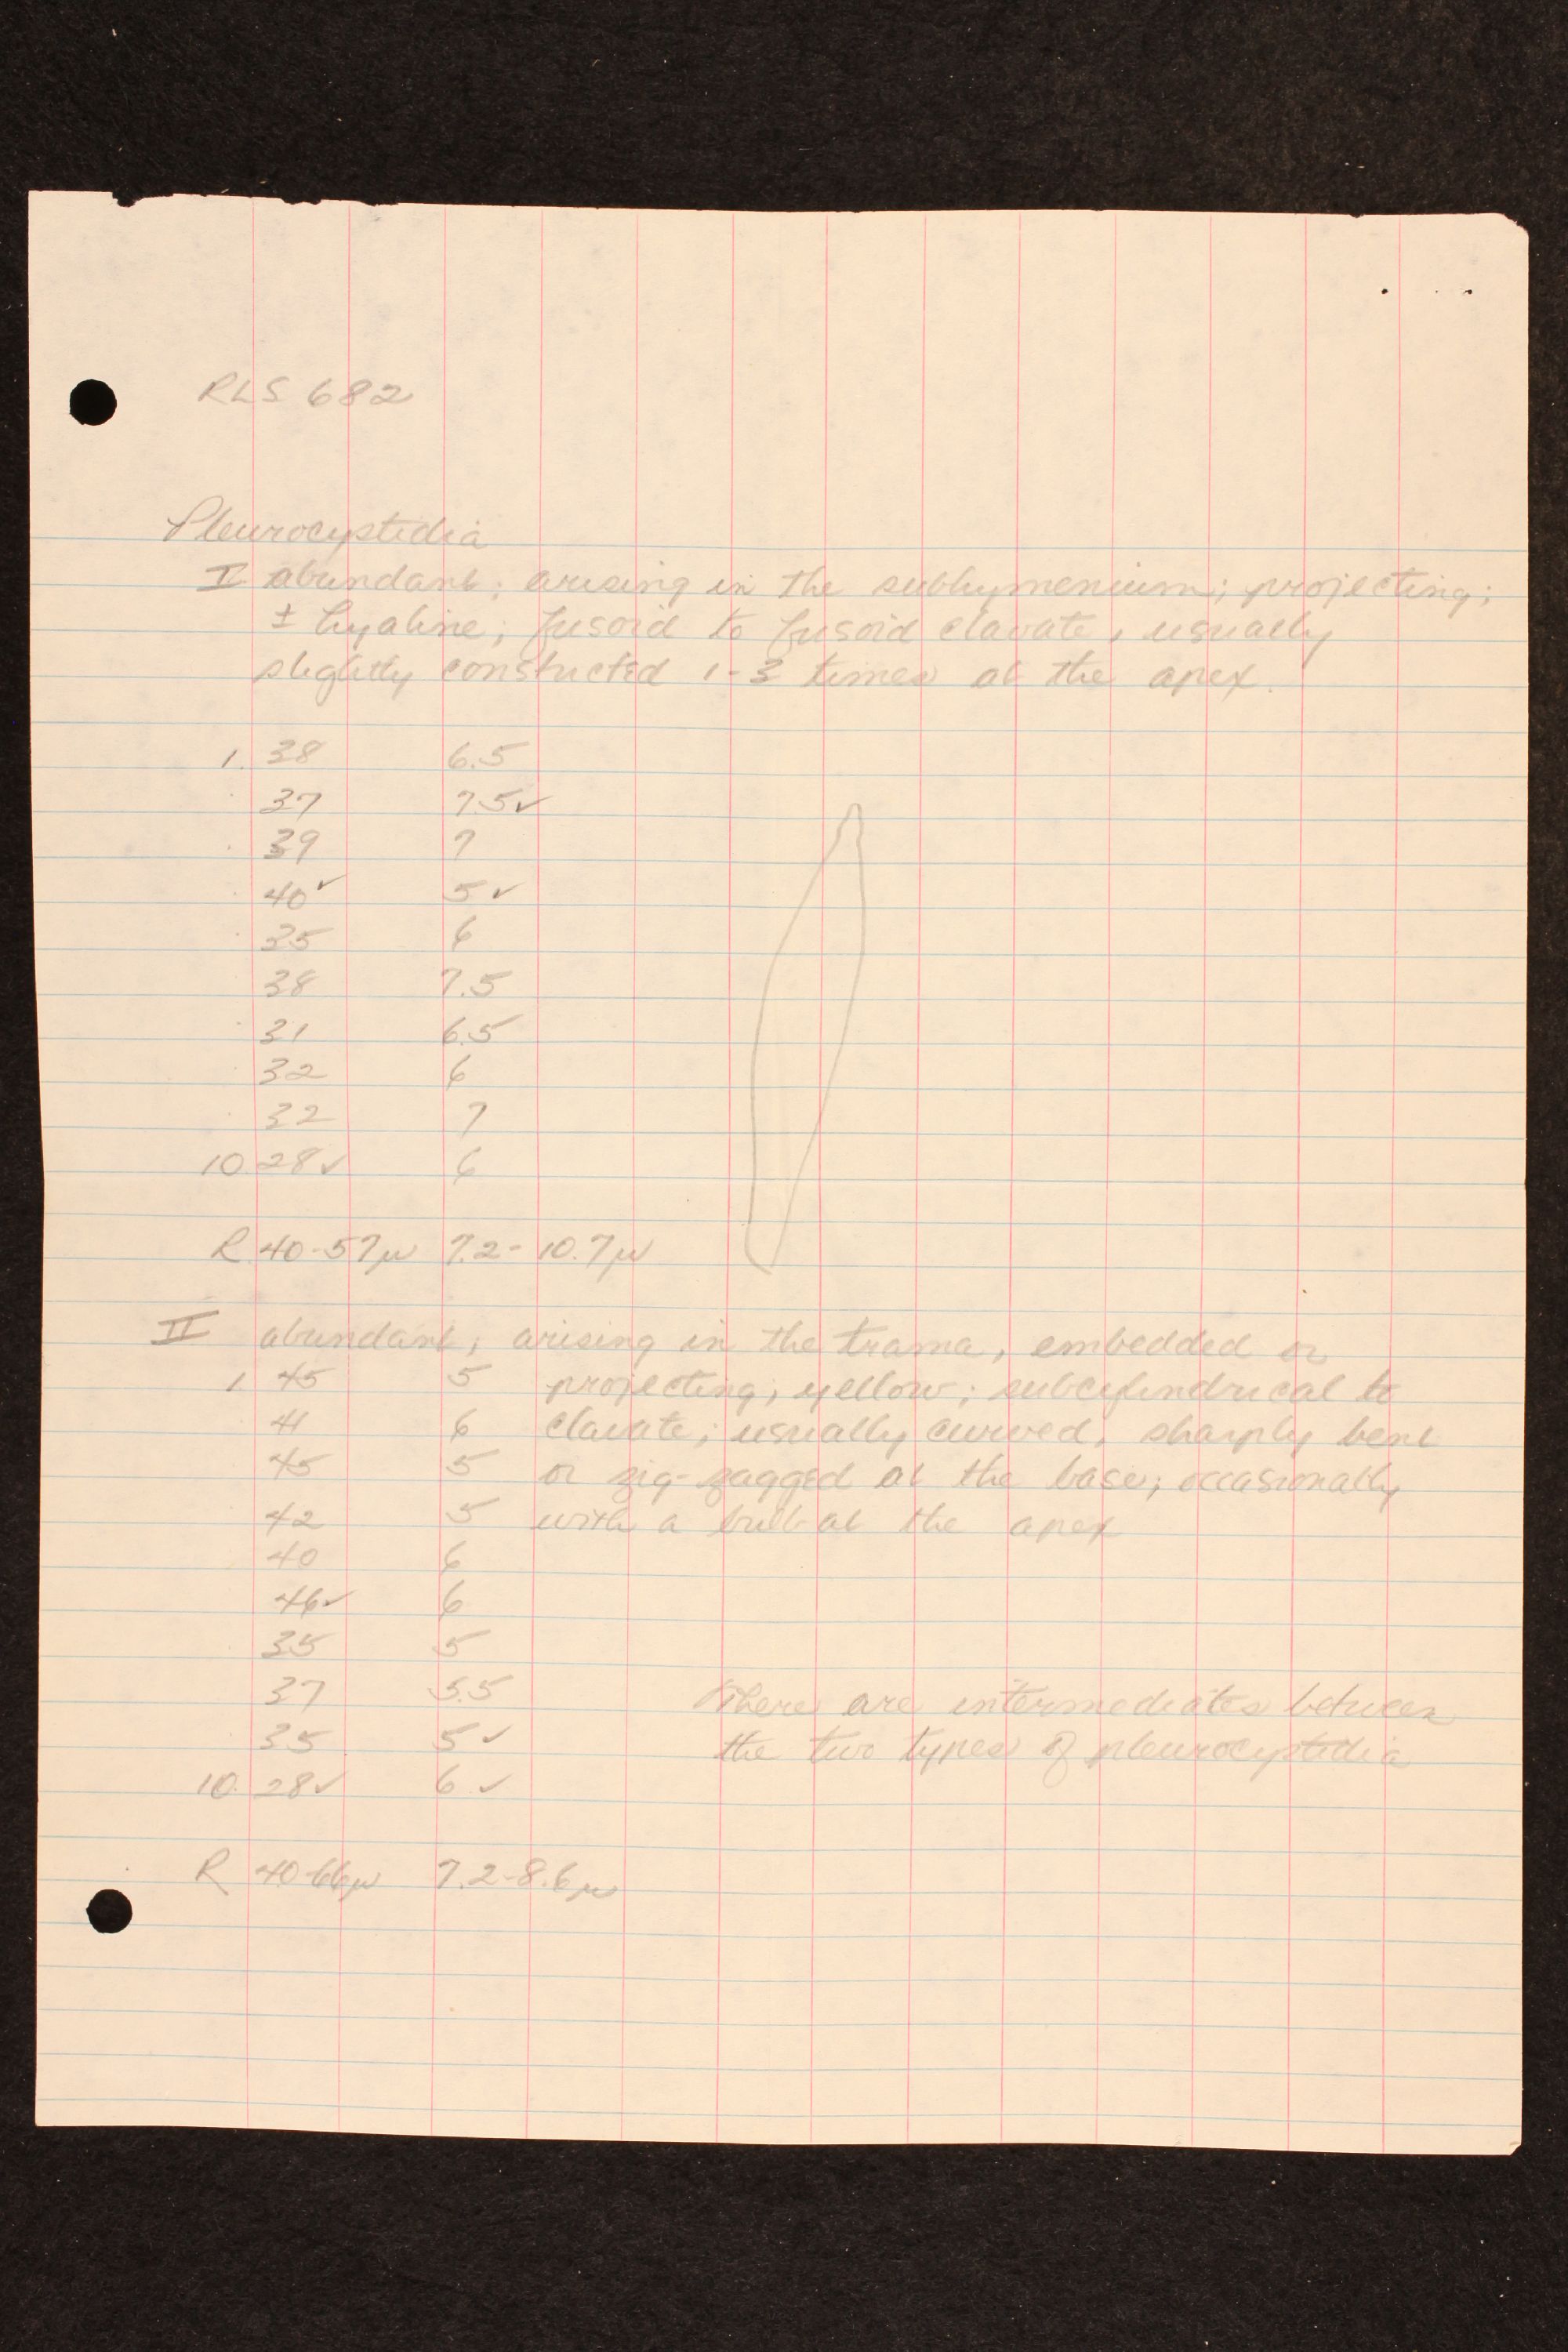 RLS 682
Pleurocystidia
I abundant; arising in the subhymenium; projecting;
± hyaline; fusoid to fusoid clavate, usually
slightly constricted 1-3 times at the apex.
1. 38 6.5
37 7.5✓
39 7
40✓ 5✓
35 6
38 7.5
31 6.5
32 6
32 7
10 28✓ 6
R 40-57μ 7.2-10.7μ
II abundant; arising in the trama, embedded or
1. 45 5 projecting; yellow; subcylindrical to
41 6 clavate; usually curved, sharply bent
45 5 or zig-zagged at the base; occasionally
42 5 with a bulb at the apex
40 6
46✓ 6
35 5
37 5.5 There are intermediates between
35 5✓ the two types of pleurocystidia
10. 28✓ 6✓
R 40-66μ 7.2-8.6μ